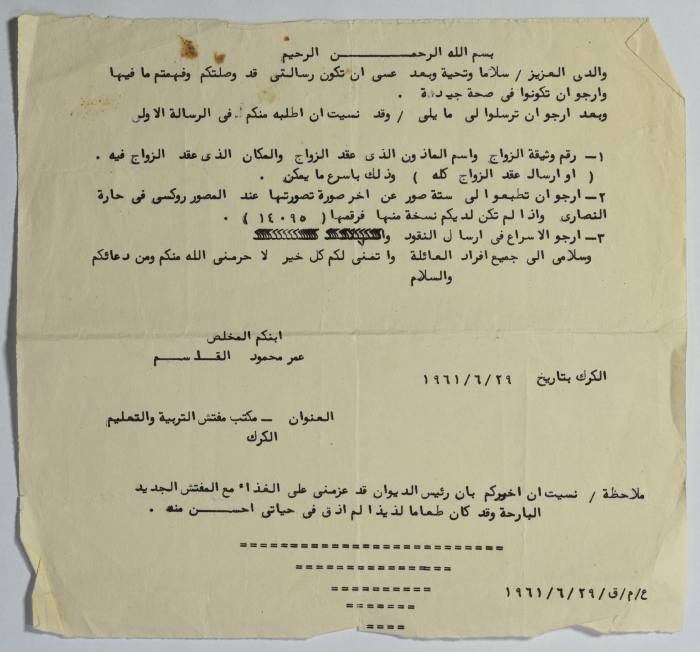 بسم الله الرحمــــــــــن الرحيم
والدى العزيز / سلاما وتحية وبعد عسى ان تكون رسالتى قد وصلتكم وفهمتم ما فيها
وارجو ان تكونوا فى صحة جيدة .
وبعد ارجو ان ترسلوا لى ما يلى / وقد نسيت ان اطلبه منكم فى الرسالة الاولى
١ــ رقم وثيقة الزواج واسم الماذون الذى عقد الزواج والمكان الذى عقد الزواج فيه .
( او ارسال عقد الزواج كله ) وذلك باسرع ما يمكن .
٢ــ ارجو ان تطبعوا لى ستة صور عن اخر صورة تصورتها عند المصور روكسى فى حارة
النصارى واذا لم تكن لديكم نسخة منها فرقمها ( ١٤٠٩٥ ) .
٣ــ ارجو الاسراع فى ارسال النقود
وسلامى الى جميع افراد العائلة واتمنى لكم كل خير لا حرمنى الله منكم ومن دعائكم
والسلام
ابنكم المخلص
عمر محمود القاســم
الكرك بتاريخ ٢٩/٦/١٩٦١
العنوان ــ مكتب مفتش التربية والتعليم
الكرك
ملاحظة / نسيت ان اخبركم بان رئيس الديوان قد عزمنى على الغذاء مع المفتش الجديد
البارحة وقد كان طعاما لذيذا لم اذق فى حياتى احســـن منه .
===========================
================
===========
=======
====
ع/م/ق/٢٩/٦/١٩٦١